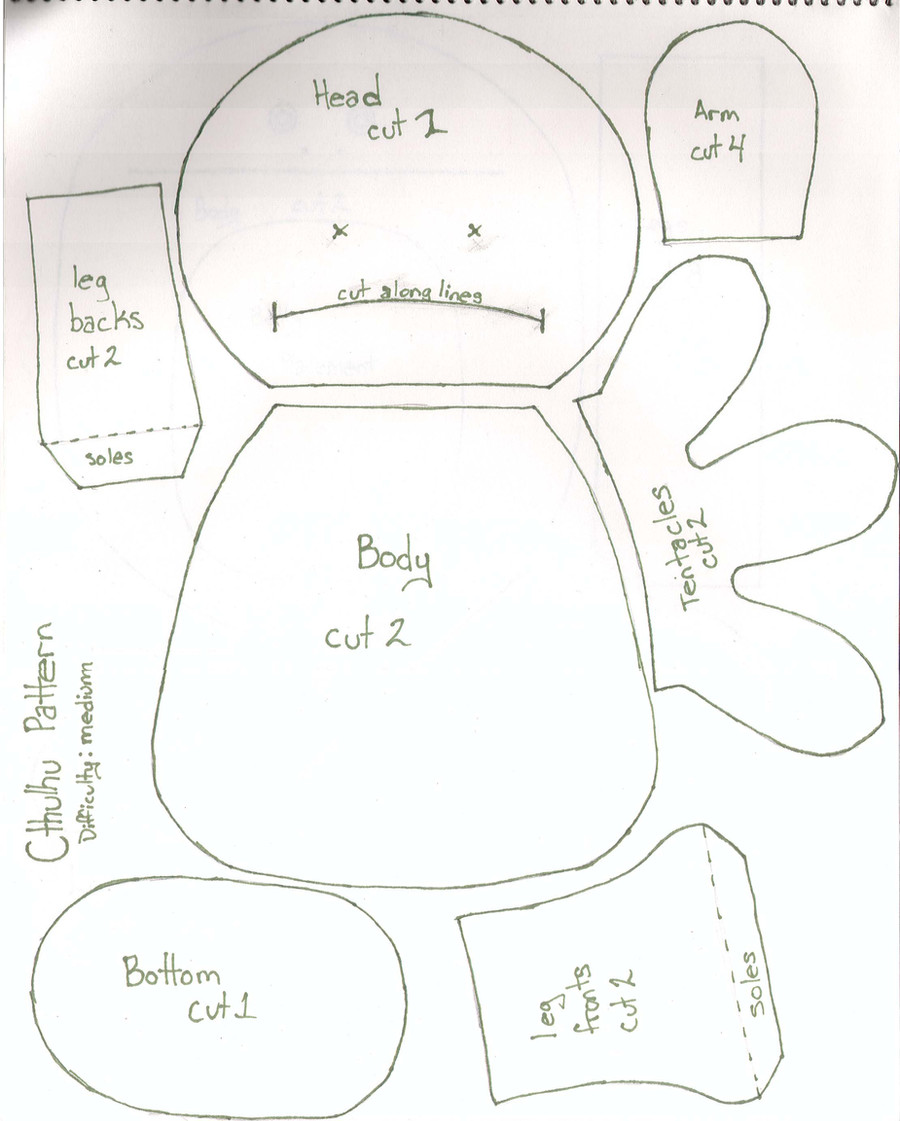 Head
cut 1
x x
cut along lines
Arm
cut 4
leg
backs
cut 2
soles
Tentacles
cut 2
Body
cut 2
Cthulhu Pattern
Difficulty: medium
Bottom
cut 1
leg
fronts
cut 2
soles